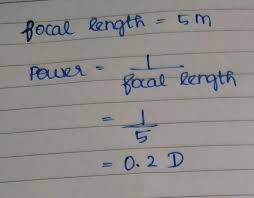 focal length = 5m
Power = 1 / focal length
= 1 / 5
= 0.2 D